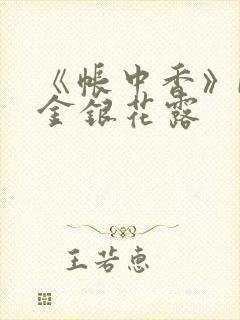 《帐中香》
金银花露
王若惠